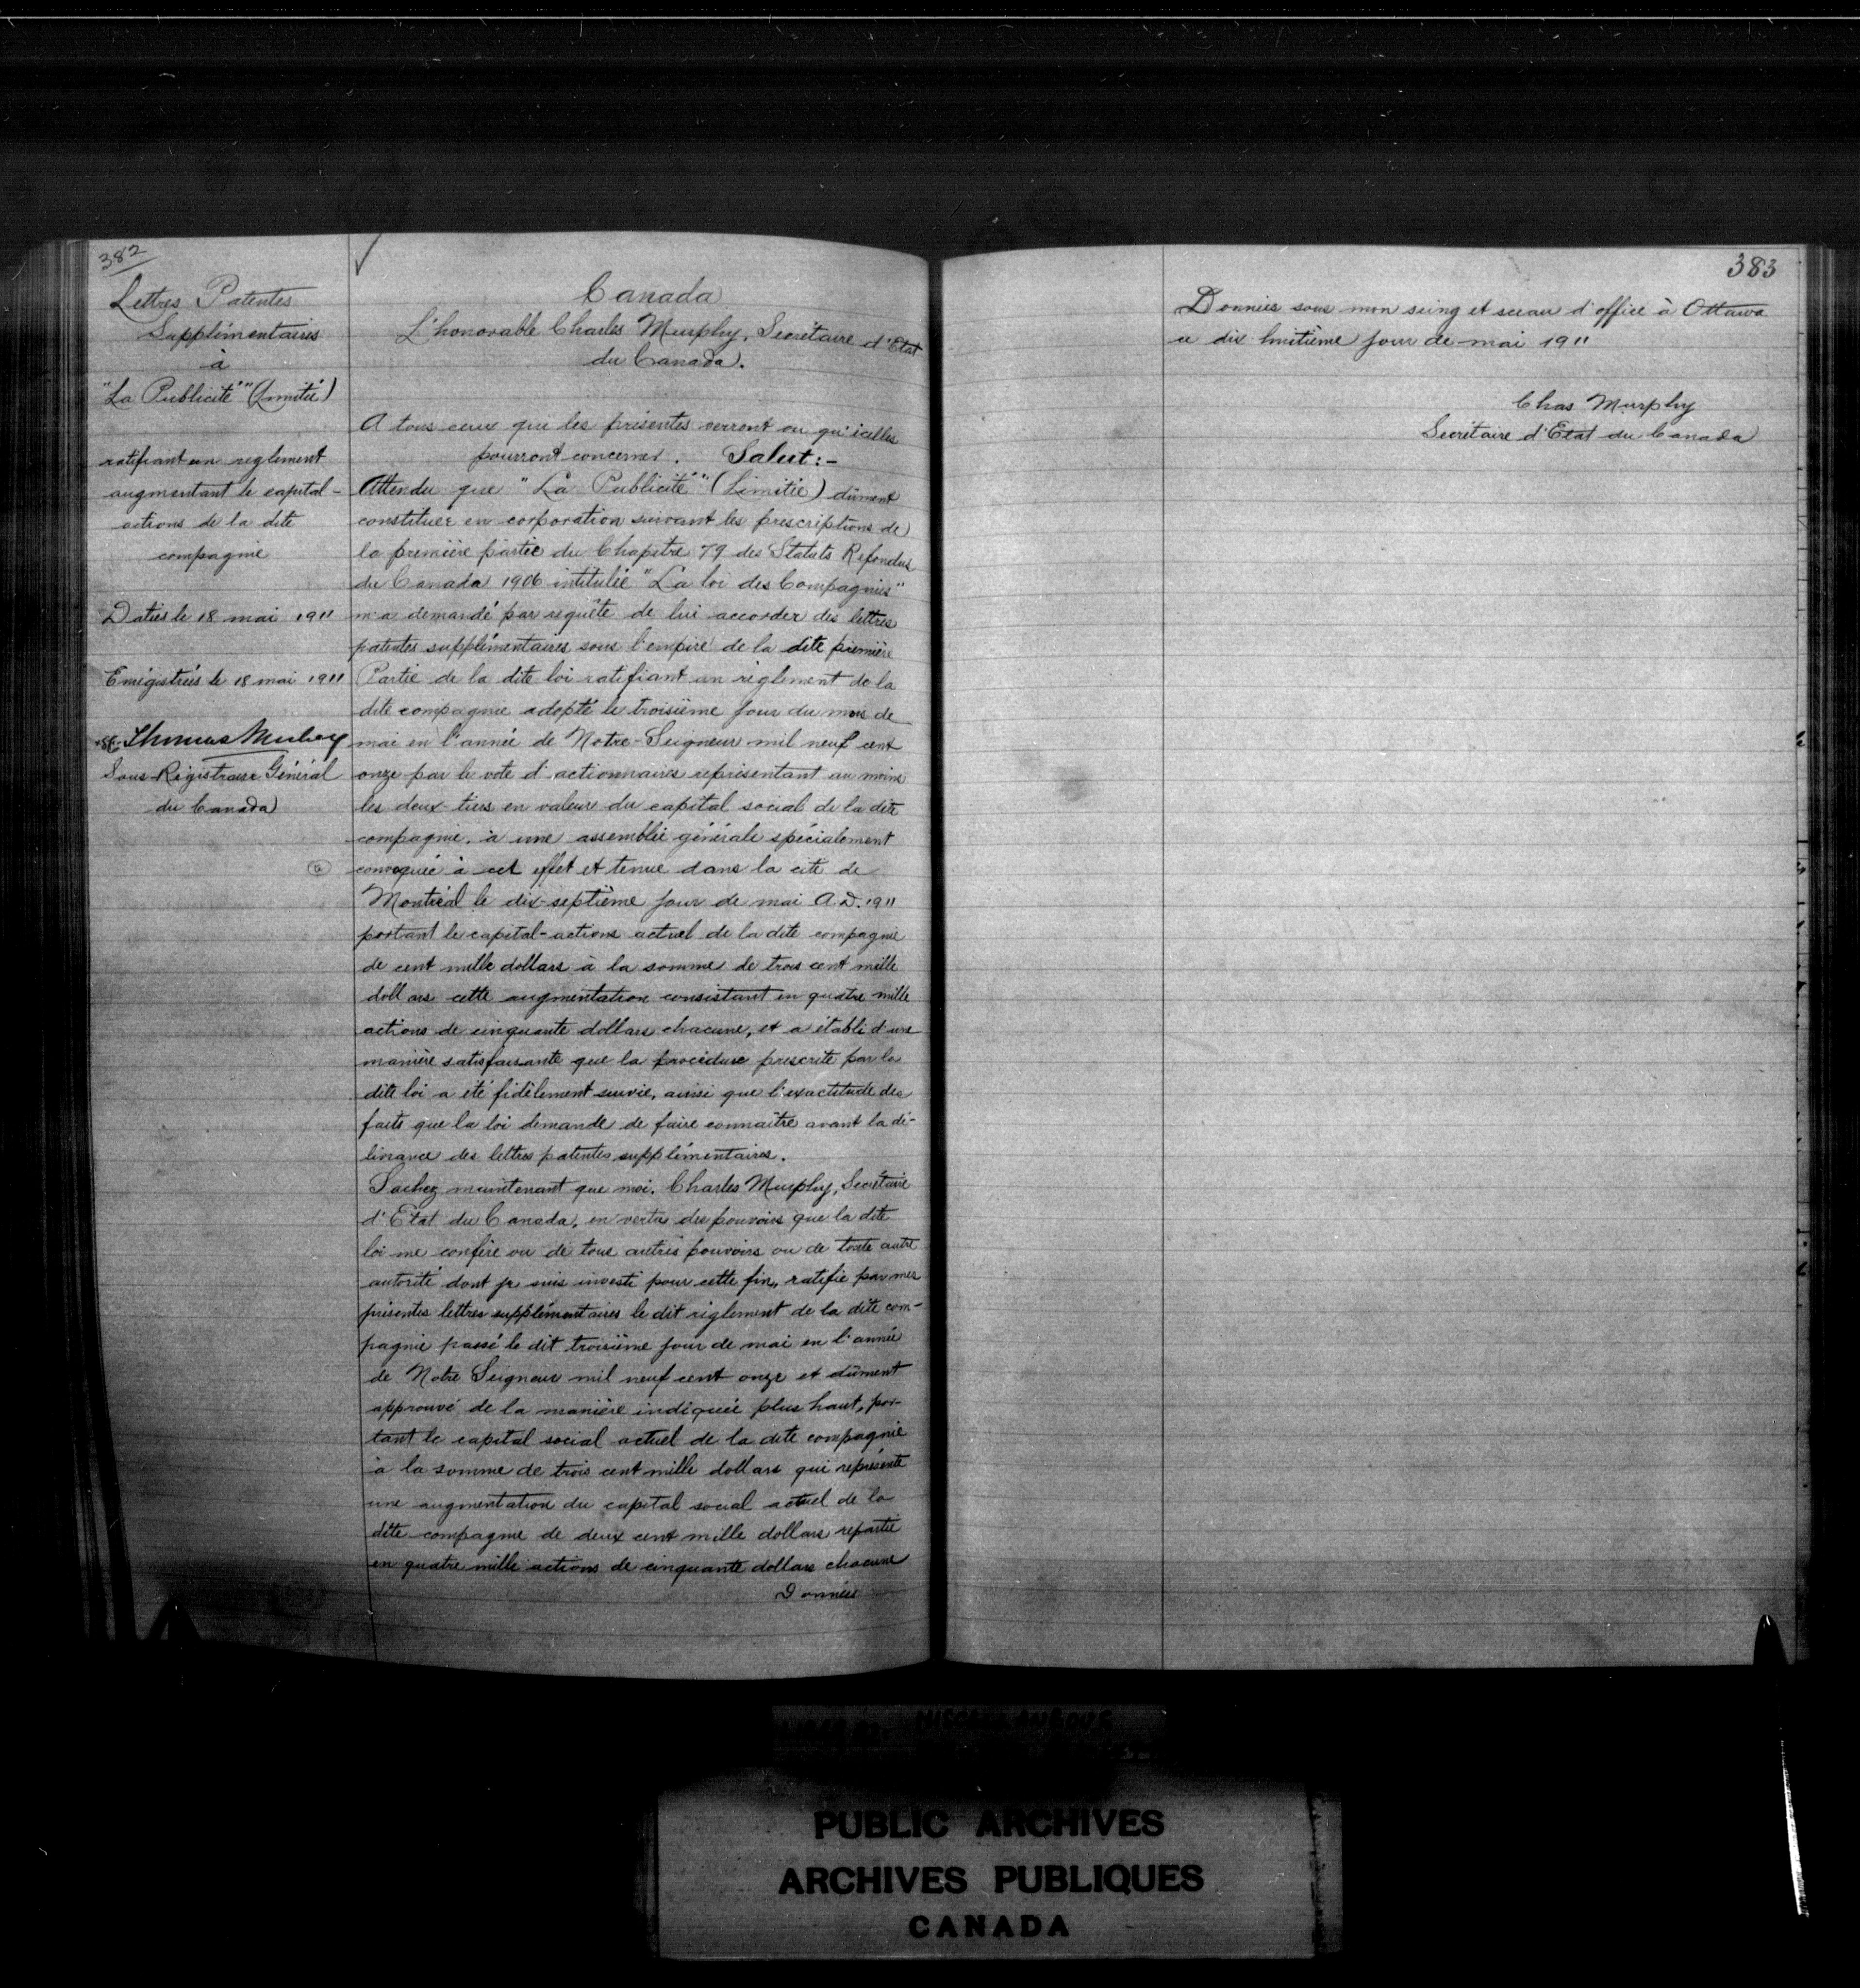 382
Lettres Patentes
Supplémentaires
à
"La Publicité" (Limitée)
ratifiant un reglement
augmentant le capital-
actions de la dite
compagnie
Datées le 18 mai 1911
Enregistrées le 18 mai 1911
Thomas Mulvey
Sous-Régistraire Général
du Canada
Canada
L'honorable Charles Murphy, Secrétaire d'Etat
du Canada.
A tous ceux que les présentes verront ou qu'icelles
pourront concerner. Salut:-
Attendu que "La Publicité" (Limitée) dûment
constituée en corporation suivant les prescriptions de
la première partie du Chapitre 79 des Statuts Refondus
du Canada 1906 intitulée "La loi des Compagnies"
m'a demandé par requête de lui accorder des lettres
patentes supplémentaires sous l'empire de la dite première
Partie de la dite loi ratifiant un règlement de la
dite compagnie adopté le troisième jour du mois de
mai en l'année de Notre-Seigneur mil neuf cent
onze par le vote d'actionnaires représentant au moins
les deux tiers en valeur du capital social de la dite
compagnie, à une assemblée générale spécialement
convoquée à cet effet et tenue dans la cité de
Montréal le dix-septième jour de mai A.D. 1911
portant le capital-actions actuel de la dite compagnie
de cent mille dollars à la somme de trois cent mille
dollars cette augmentation consistant en quatre mille
actions de cinquante dollars chacune, et a établi d'une
manière satisfaisante que la procédure prescrite par la
dite loi a été fidèlement suivie, ainsi que l'exactitude des
faits que la loi demande de faire connaître avant la dé-
livrance des lettres patentes supplémentaires.
Sachez maintenant que moi, Charles Murphy, Secrétaire
d'Etat du Canada, en vertu des pouvoirs que la dite
loi me confère ou de tous autres pouvoirs ou de toute autre
autorité dont je suis investi pour cette fin, ratifie par mes
présentes lettres supplémentaires le dit règlement de la dite com-
pagnie passé le dit troisième jour de mai en l'année
de Notre Seigneur mil neuf cent onze et dûment
approuvé de la manière indiquée plus haut, por-
tant le capital social actuel de la dite compagnie
à la somme de trois cent mille dollars qui représente
une augmentation du capital social actuel de la
dite compagnie de deux cent mille dollars répartie
en quatre mille actions de cinquante dollars chacune
Données
383
Données sous mon seing et sceau d'office à Ottawa
ce dix huitième jour de mai 1911
Chas Murphy
Secrétaire d'Etat du Canada
PUBLIC ARCHIVES
ARCHIVES PUBLIQUES
CANADA